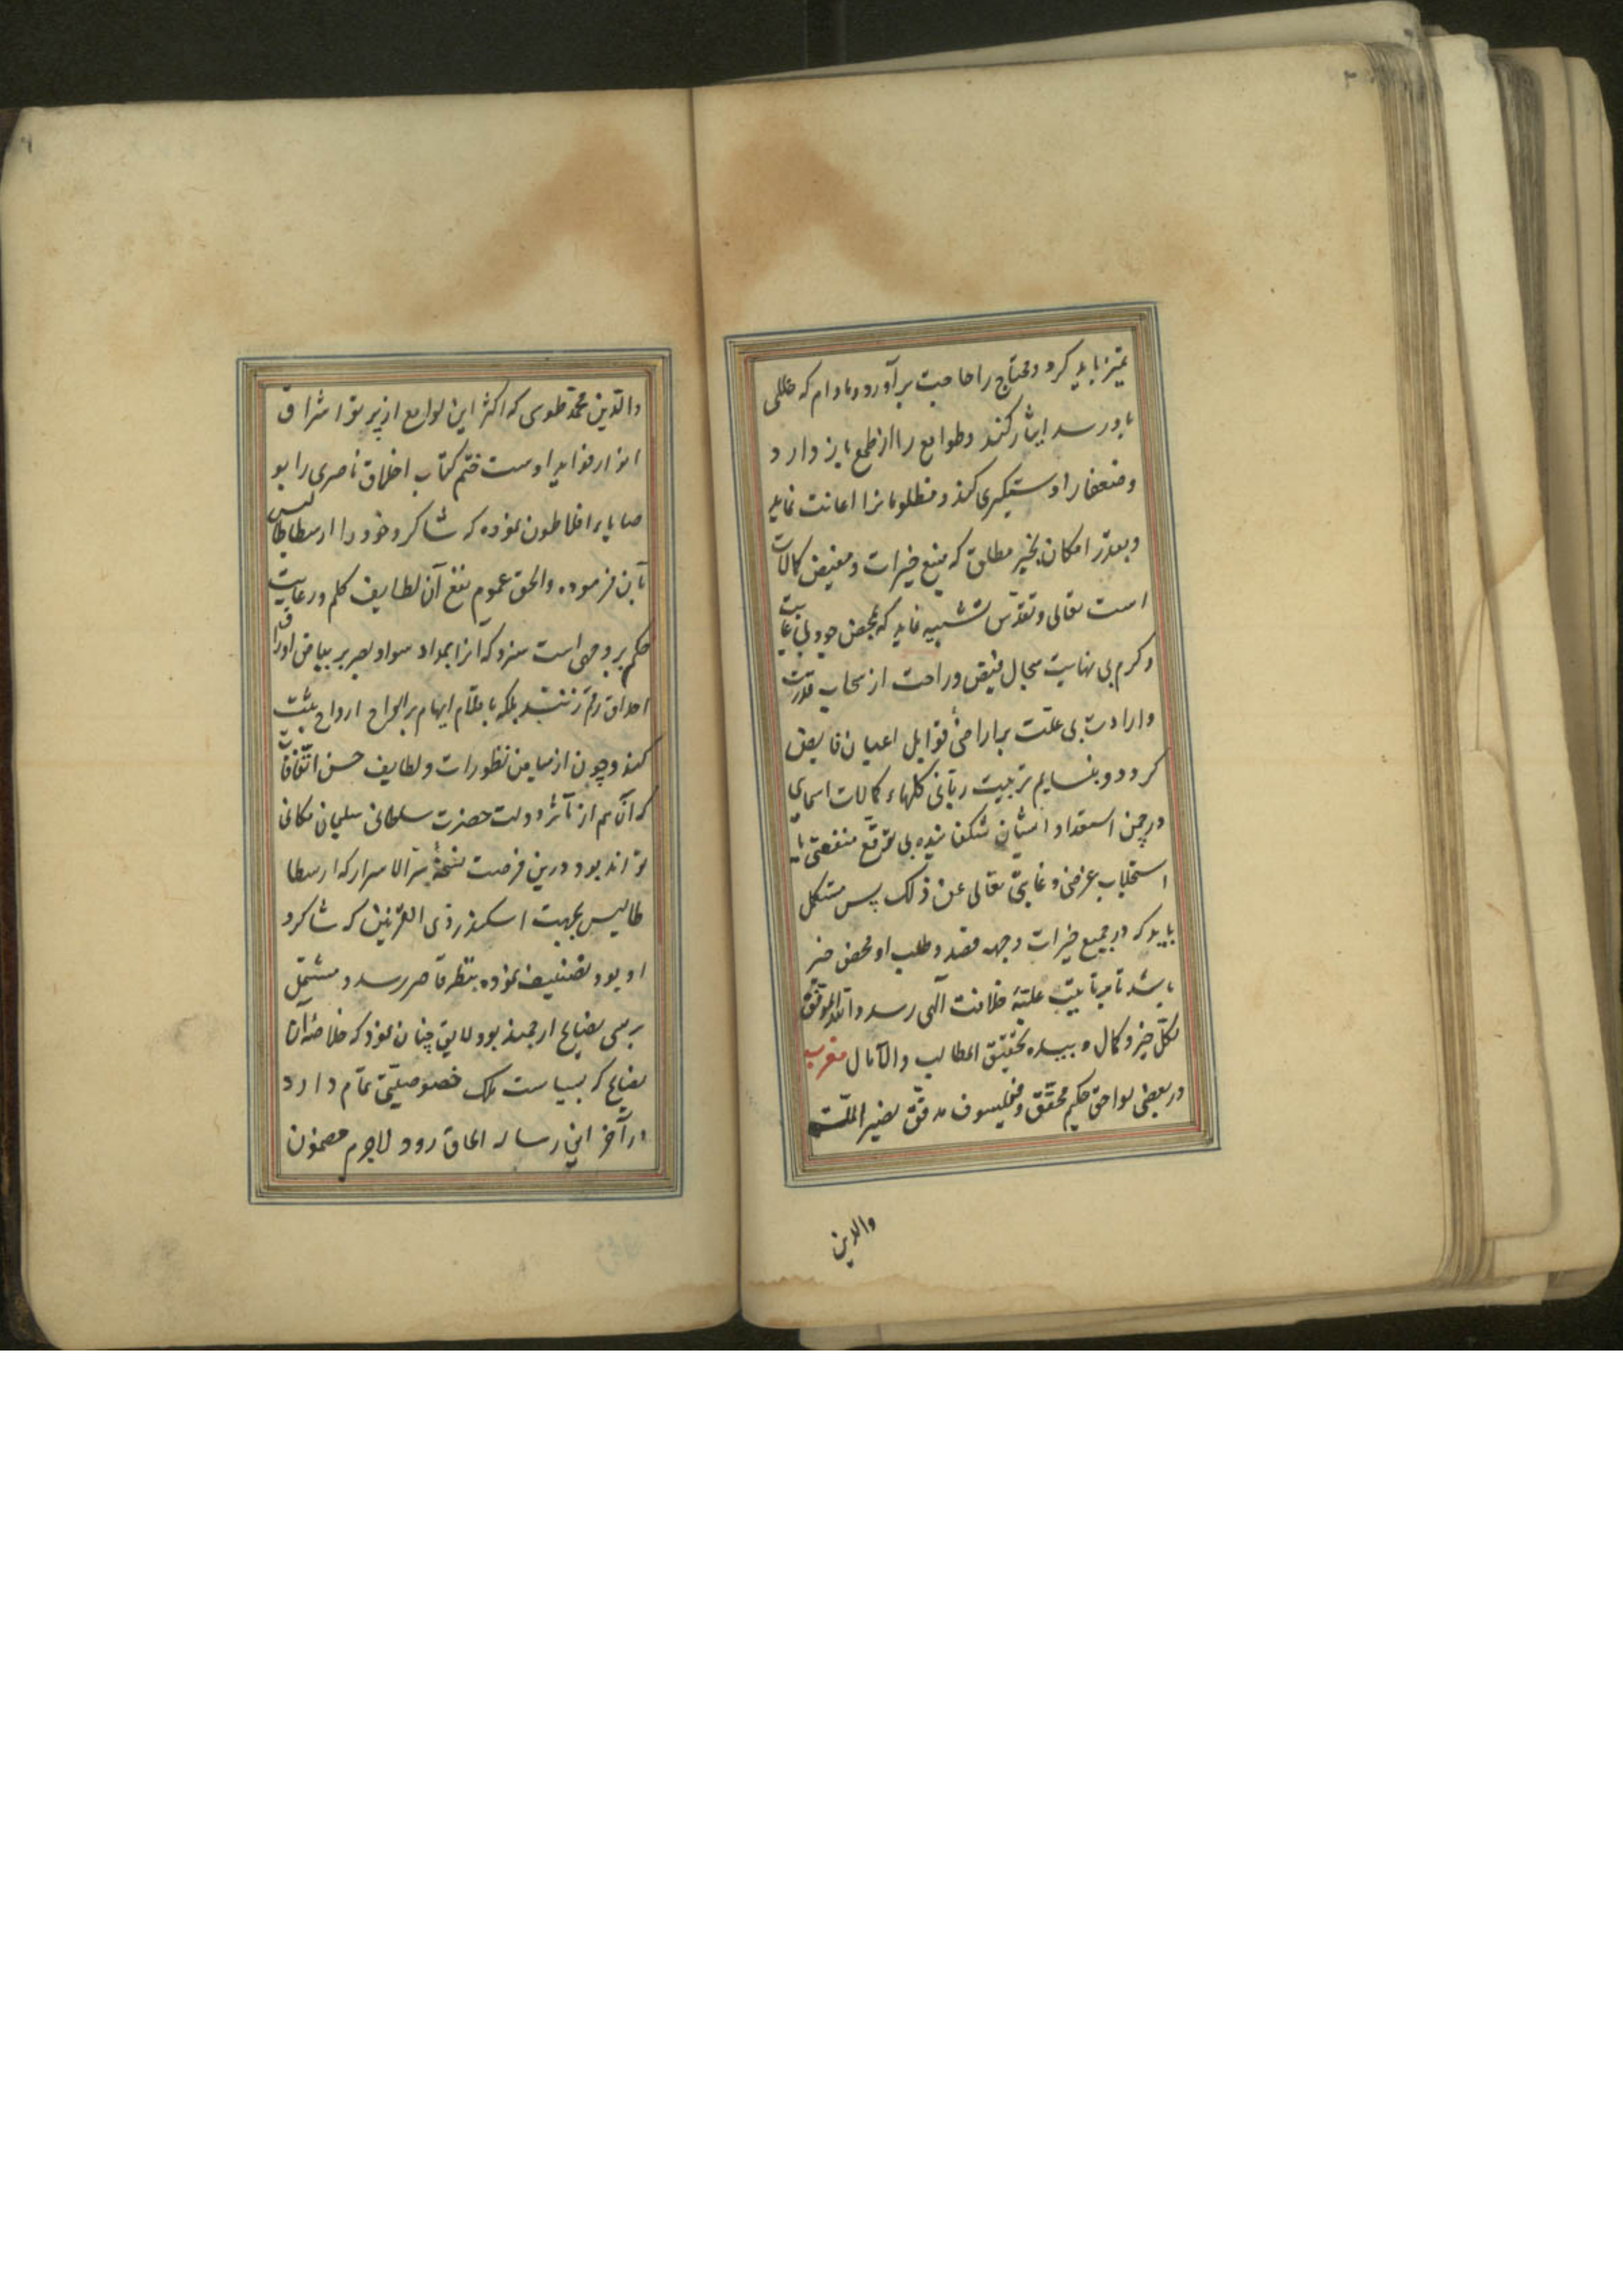 تمیز باید کرد و محتاج را حاجت برآورد و مادام که خللی
باو رسد ایثار کند و طوامع را از طمع باز دارد
و ضعفا را دستگیری کند و مظلومانرا اعانت نماید
و بقدر امکان بخیر مطلق که منبع خیرات و مفیض کمالات
است تعالی و تقدس تشبیه نماید که بمحض جود بی غایت
و کرم بی نهایت سجال فیض و راحت از سحاب قدرت
و ارادت بی علت بر اراضئ قوابل اعیان فایض
کردد و بنسایم تربیت ربانی کلهاء کمالات اسمایی
در چمن استعداد ایشان شکفانیده بی توقع منفعتی یا
استجلاب عرضی و غایتی تعالی عن ذلک پس متکفل
باید که در جمیع خیرات وجهه قصد و طلب او محض خیر
باشد تا بمرتبت علیّهٔ خلافت آلهی رسد والله الموفق
لکلّ خیر و کمال و بیده تحقیق المطالب والآمال مغرب
در بعضی لواحق حکیم محقق و فیلسوف مدقق نصیر الملّة
والدین
والدین محمد طوسی که اکثر این لوامع از پرتو اشراق
انوار فواید اوست ختم کتاب اخلاق ناصری را بو
صایا افلاطون نموده که شاکرد خود را ارسطاطالیس
بآن فرموده والحق عموم نفع آن لطایف کلم و رعایت
حکم بر وجهی است سزد که انرا بمداد سواد بصر بر بیاض اوراق
احداق رقم زنند بلکه باقلام ایهام بر الواح ارواح ثبت
کنند و چون از میامن تطورات و لطایف حسن اتفاقات
که آن هم از مآثر دولت حضرت سلطانی سلیمان مکانی
تواند بود درین فرصت نسخهٔ سرّ الاسرار که ارسطا
طالیس بجهت اسکندر ذی القرنین که شاکرد
او بود تصنیف نموده بنظر قاصر رسد و مشتمل
بر بسی نصایح ارجمند بود لایق چنان نمود که خلاصهٔ آن
نصایح که بسیاست ملک خصوصیتی تمام دارد
در آخر این رساله الحاق رود لاجرم مضمون